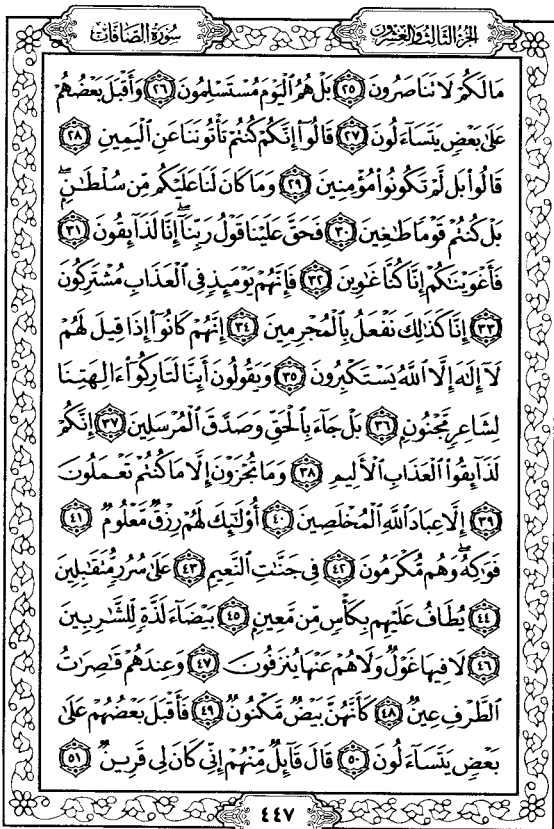 سُورَةُ الصَّافَّاتِ
الجُزْءُ الثَّالِثُ وَالعِشْرُونَ
مَا لَكُمْ لَا تَنَاصَرُونَ ٢٥ بَلْ هُمُ الْيَوْمَ مُسْتَسْلِمُونَ ٢٦ وَأَقْبَلَ بَعْضُهُمْ
عَلَىٰ بَعْضٍ يَتَسَآءَلُونَ ٢٧ قَالُوٓا۟ إِنَّكُمْ كُنتُمْ تَأْتُونَنَا عَنِ الْيَمِينِ ٢٨
قَالُوا۟ بَل لَّمْ تَكُونُوا۟ مُؤْمِنِينَ ٢٩ وَمَا كَانَ لَنَا عَلَيْكُم مِّن سُلْطَٰنٍۭ ۖ
بَلْ كُنتُمْ قَوْمًا طَٰغِينَ ٣٠ فَحَقَّ عَلَيْنَا قَوْلُ رَبِّنَآ ۖ إِنَّا لَذَآئِقُونَ ٣١
فَأَغْوَيْنَٰكُمْ إِنَّا كُنَّا غَٰوِينَ ٣٢ فَإِنَّهُمْ يَوْمَئِذٍ فِى الْعَذَابِ مُشْتَرِكُونَ
٣٣ إِنَّا كَذَٰلِكَ نَفْعَلُ بِالْمُجْرِمِينَ ٣٤ إِنَّهُمْ كَانُوٓا۟ إِذَا قِيلَ لَهُمْ
لَآ إِلَٰهَ إِلَّا اللَّهُ يَسْتَكْبِرُونَ ٣٥ وَيَقُولُونَ أَئِنَّا لَتَارِكُوٓا۟ ءَالِهَتِنَا
لِشَاعِرٍ مَّجْنُونٍۭ ٣٦ بَلْ جَآءَ بِالْحَقِّ وَصَدَّقَ الْمُرْسَلِينَ ٣٧ إِنَّكُمْ
لَذَآئِقُوا۟ الْعَذَابِ الْأَلِيمِ ٣٨ وَمَا تُجْزَوْنَ إِلَّا مَا كُنتُمْ تَعْمَلُونَ
٣٩ إِلَّا عِبَادَ اللَّهِ الْمُخْلَصِينَ ٤٠ أُو۟لَٰٓئِكَ لَهُمْ رِزْقٌ مَّعْلُومٌ ٤١
فَوَٰكِهُ ۖ وَهُم مُّكْرَمُونَ ٤٢ فِى جَنَّٰتِ النَّعِيمِ ٤٣ عَلَىٰ سُرُرٍ مُّتَقَٰبِلِينَ
٤٤ يُطَافُ عَلَيْهِم بِكَأْسٍ مِّن مَّعِينٍۭ ٤٥ بَيْضَآءَ لَذَّةٍ لِّلشَّٰرِبِينَ
٤٦ لَا فِيهَا غَوْلٌ وَلَا هُمْ عَنْهَا يُنزَفُونَ ٤٧ وَعِندَهُمْ قَٰصِرَٰتُ
الطَّرْفِ عِينٌ ٤٨ كَأَنَّهُنَّ بَيْضٌ مَّكْنُونٌ ٤٩ فَأَقْبَلَ بَعْضُهُمْ عَلَىٰ
بَعْضٍ يَتَسَآءَلُونَ ٥٠ قَالَ قَآئِلٌ مِّنْهُمْ إِنِّى كَانَ لِى قَرِينٌ ٥١
٤٤٧